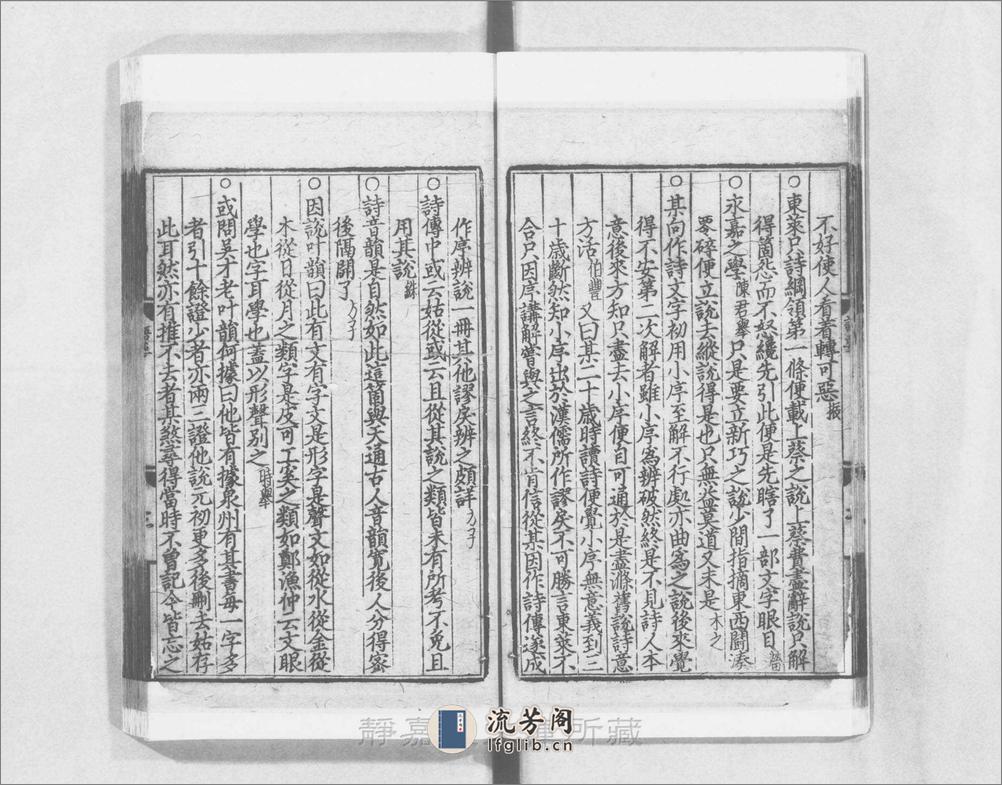 不好使人看著轉可惡振
○東萊只詩綱領第一條便載上蔡之說上蔡費盡辭說只解
得箇怨而不怒纔先引此便是先瞎了一部文字眼目㽦
○永嘉之學陳君舉只是要立新巧之說少間指摘東西鬬湊
零碎便立說去縱說得是也只無益莫道又未是木之
○某向作詩文字初用小序至解不行處亦曲為之說後來覺
得不安第二次解者雖小序為辨破然終是不見詩人本
意後來方知只盡去小序便自可通於是盡滌舊說詩意
方活伯豐又曰某二十歲時讀詩便覺小序無意義到三
十歲斷然知小序出於漢儒所作謬戾不可勝言東萊不
合只因序講解嘗與之言終不肯信從某因作詩傳遂成
作序辨說一冊其他謬戾辨之頗詳方子
○詩傳中或云姑從或云且從其說之類皆未有所考不免且
用其說銖
○詩音韻是自然如此這箇與天通古人音韻寬後人分得密
後隔開了方子
○因說叶韻曰此有文有字文是形字是聲文如從水從金從
木從日從月之類字是皮可工奚之類如鄭漁仲云文眼
學也字耳學也蓋以形聲別之時舉
○或問吳才老叶韻何據曰他皆有據泉州有其書每一字多
者引十餘證少者亦兩三證他說元初更多後刪去姑存
此耳然亦有推不去者某煞尋得當時不曾記今皆忘之
靜嘉 所藏
流芳阁
lfglib.cn